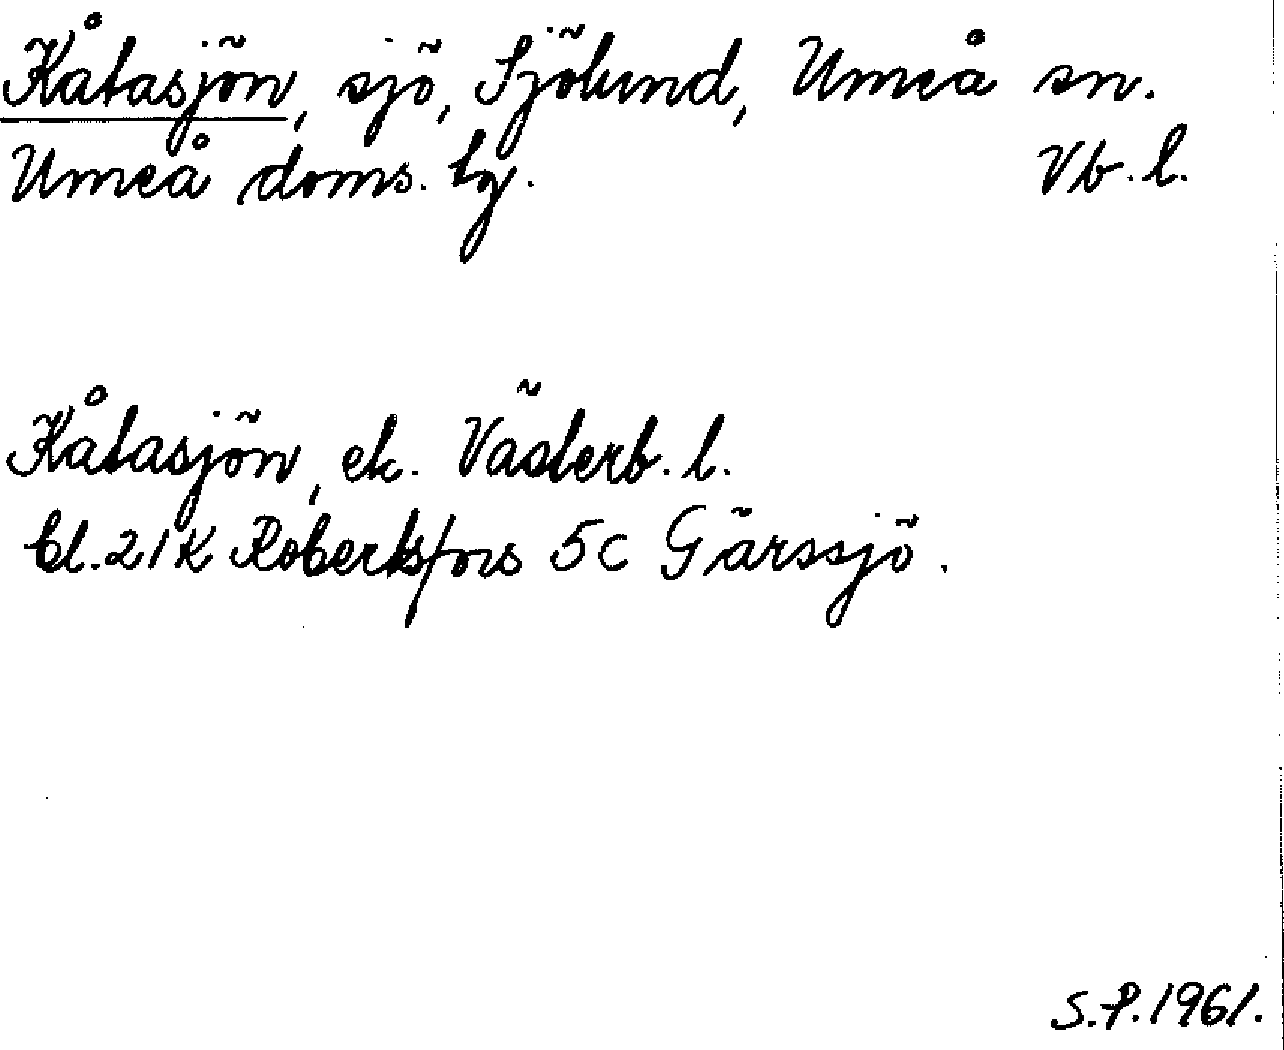 Kåtasjön, sjö, Sjölund, Umeå sn.
Umeå doms. tg. Vb. l.
Kåtasjön, ek. Västerb. l.
bl. 21K Robertsfors 5c Gärssjö.
S.P. 1961.